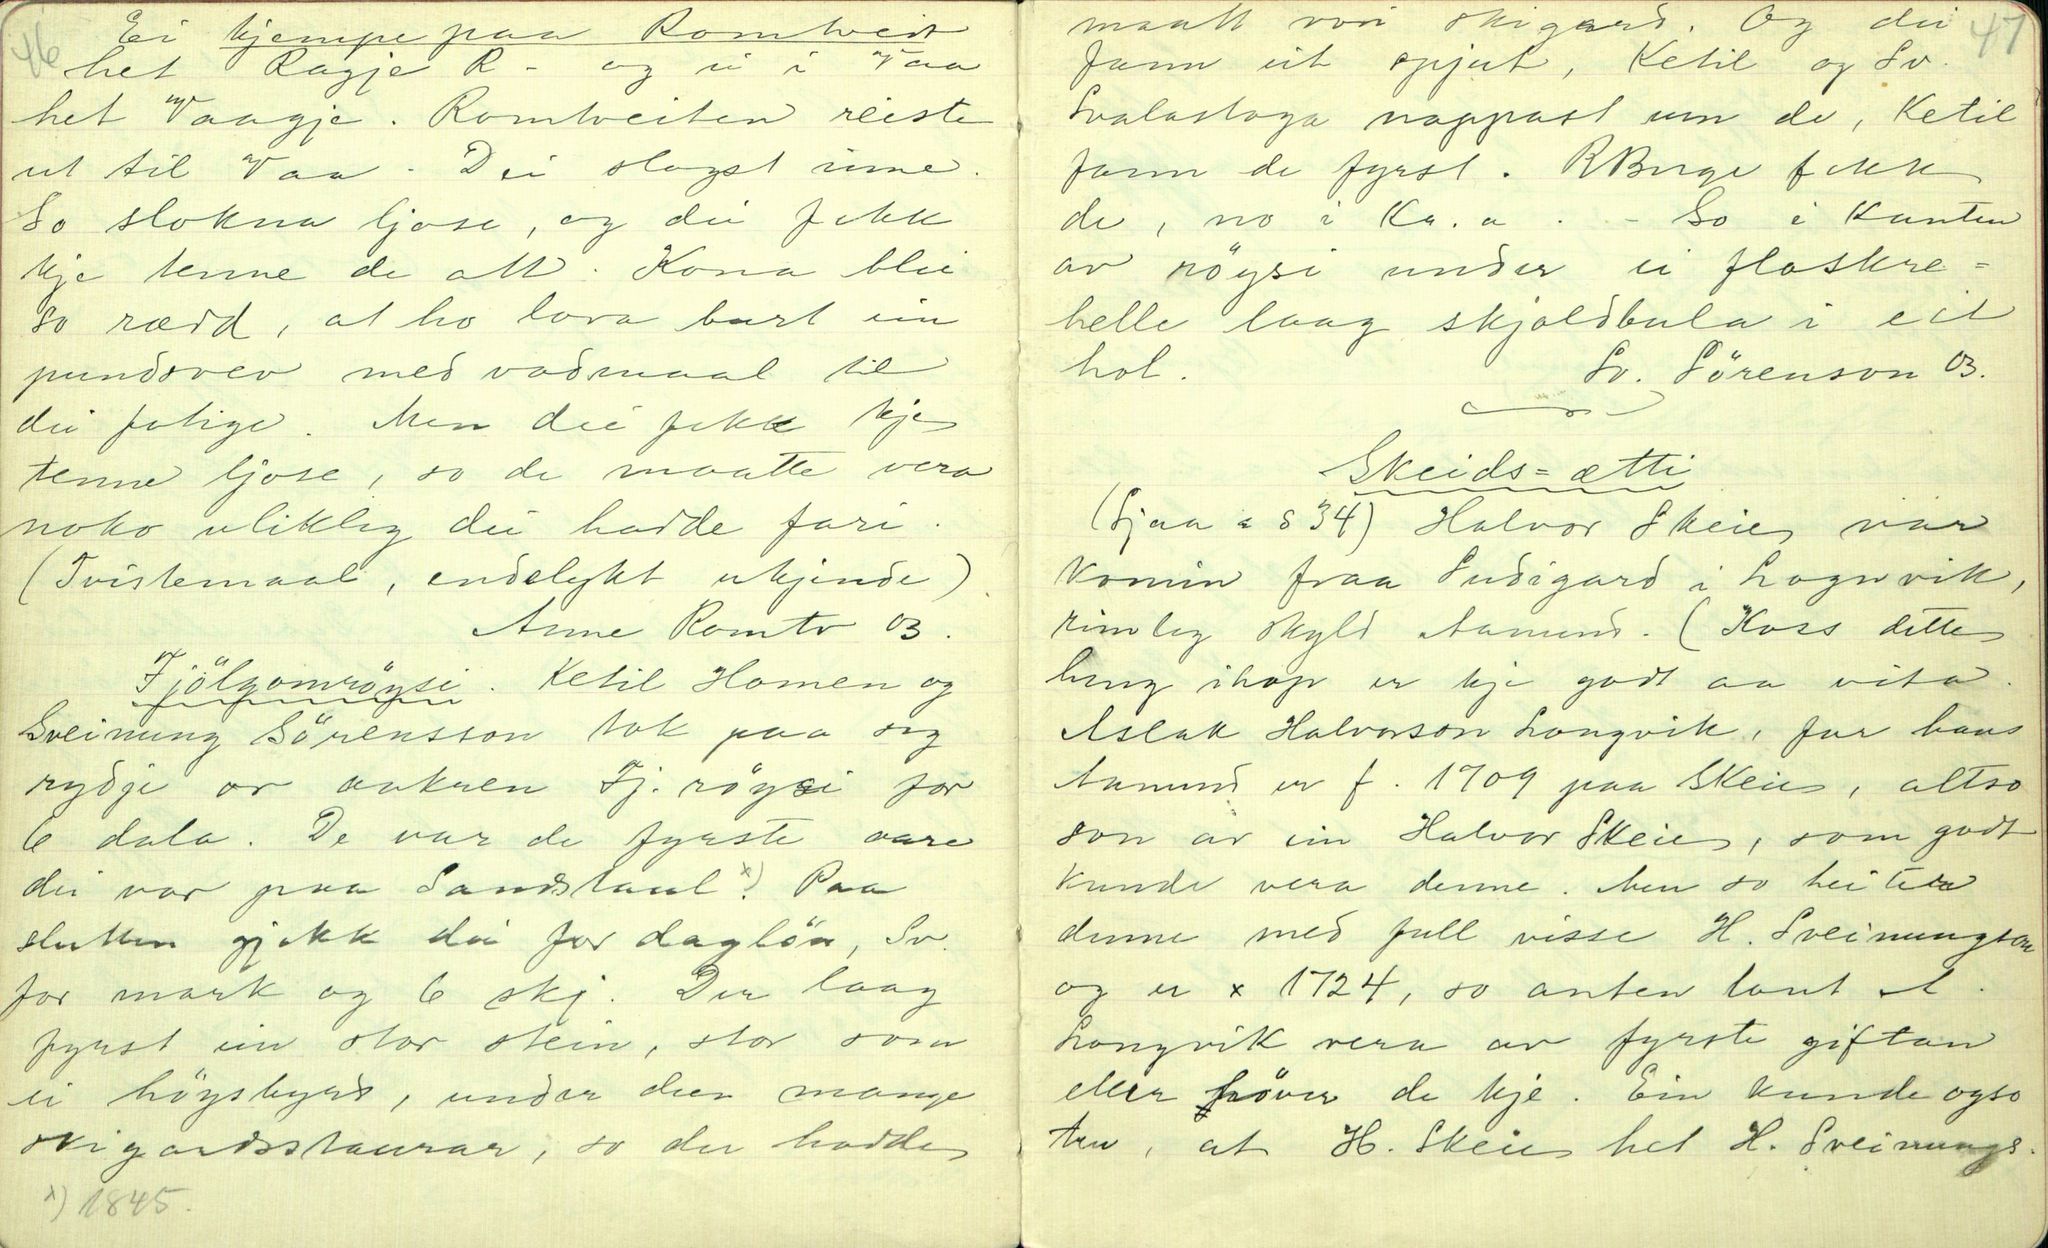 46
Ei kjempe paa Romtveit
het Ragje R - og ei i Vaa
het Vaagje. Romtveiten reiste
ut til Vaa - Dei slogst inne.
So slokna ljose, og dei fekk
kje tenne de att. Kona blei
so rædd, at ho lova burt ein
pundsvev med vadmaal til
dei fatige. Men dei fekk kje
tenne ljose, so de maatte vera
noko ulikleg dei hadde fari.
(Tvistemaal, endelykt ukjende)
Anne Romtv 03.
Fjölgomröysi. Ketil Homen og
Sveinung Sörensson tok paa seg
rydje or aakren Fj. röysi for
6 dala. De var de fyrste aare
dei var paa Sandstaul x). Paa
slutten gjekk dei for daglön, Sv.
for mark og 6 skj. Der laag
fyrst ein stor stein, stor som
ei höysbyrd, under den mange
skigardsstaurar, so der hadde
x) 1845.
47
maatt vori skigard. Og dei
fann eit spjut, Ketil og Sv.
Svalastoga nappast um de, Ketil
fann de fyrst. RBerge fekk
de, no i Kr.a. - So i kanten
av röysi under ei flaskre=
helle laag skjoldbula i eit
hol. Sv. Sörenson 03.
Skeids=ætti
(Sjaa a s 34) Halvor Skeie var
komin fraa Sudigard i Lognvik,
rimleg skyld Aamund. (Koss dette
heng ihop er kje godt aa vita.
Aslak Halvorson Longvik, far hans
Aamund er f. 1709 paa Skeie, altso
son av ein Halvor Skeie, som godt
kunde vera denne. Men so heiter
denne med full visse H. Sveinungson
og er x 1724, so anten laut A.
Longvik vera av fyrste giftan
eller höver de kje. Ein kunde ogso
tru, at H. Skeie het H. Sveinungs.